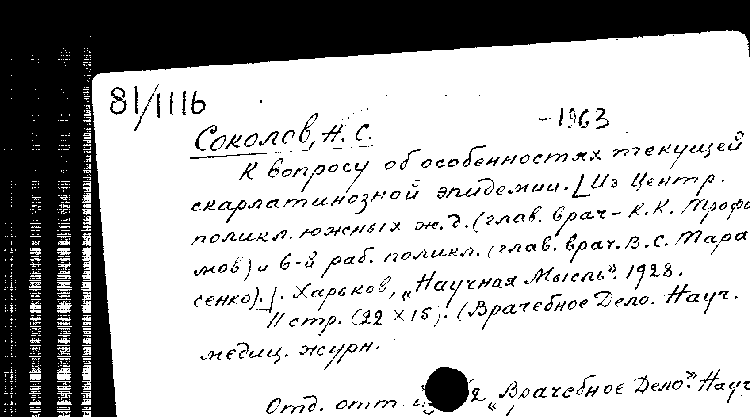 81/1116
-1963
Соколов, Н. С.
К вопросу об особенностях текущей
скарлатинозной эпидемии. [Из Центр.
поликл. южных ж.д. (глав. врач - К.К. Трофи
мов) и 6-й раб. поликл. (глав. врач. В.С. Тара
сенко).]. Харьков, „Научная Мысль". 1928.
11 стр. (22 X 15). (Врачебное Дело. Науч.
медиц. журн.
Отд. отт. „Врачебное Дело". Науч